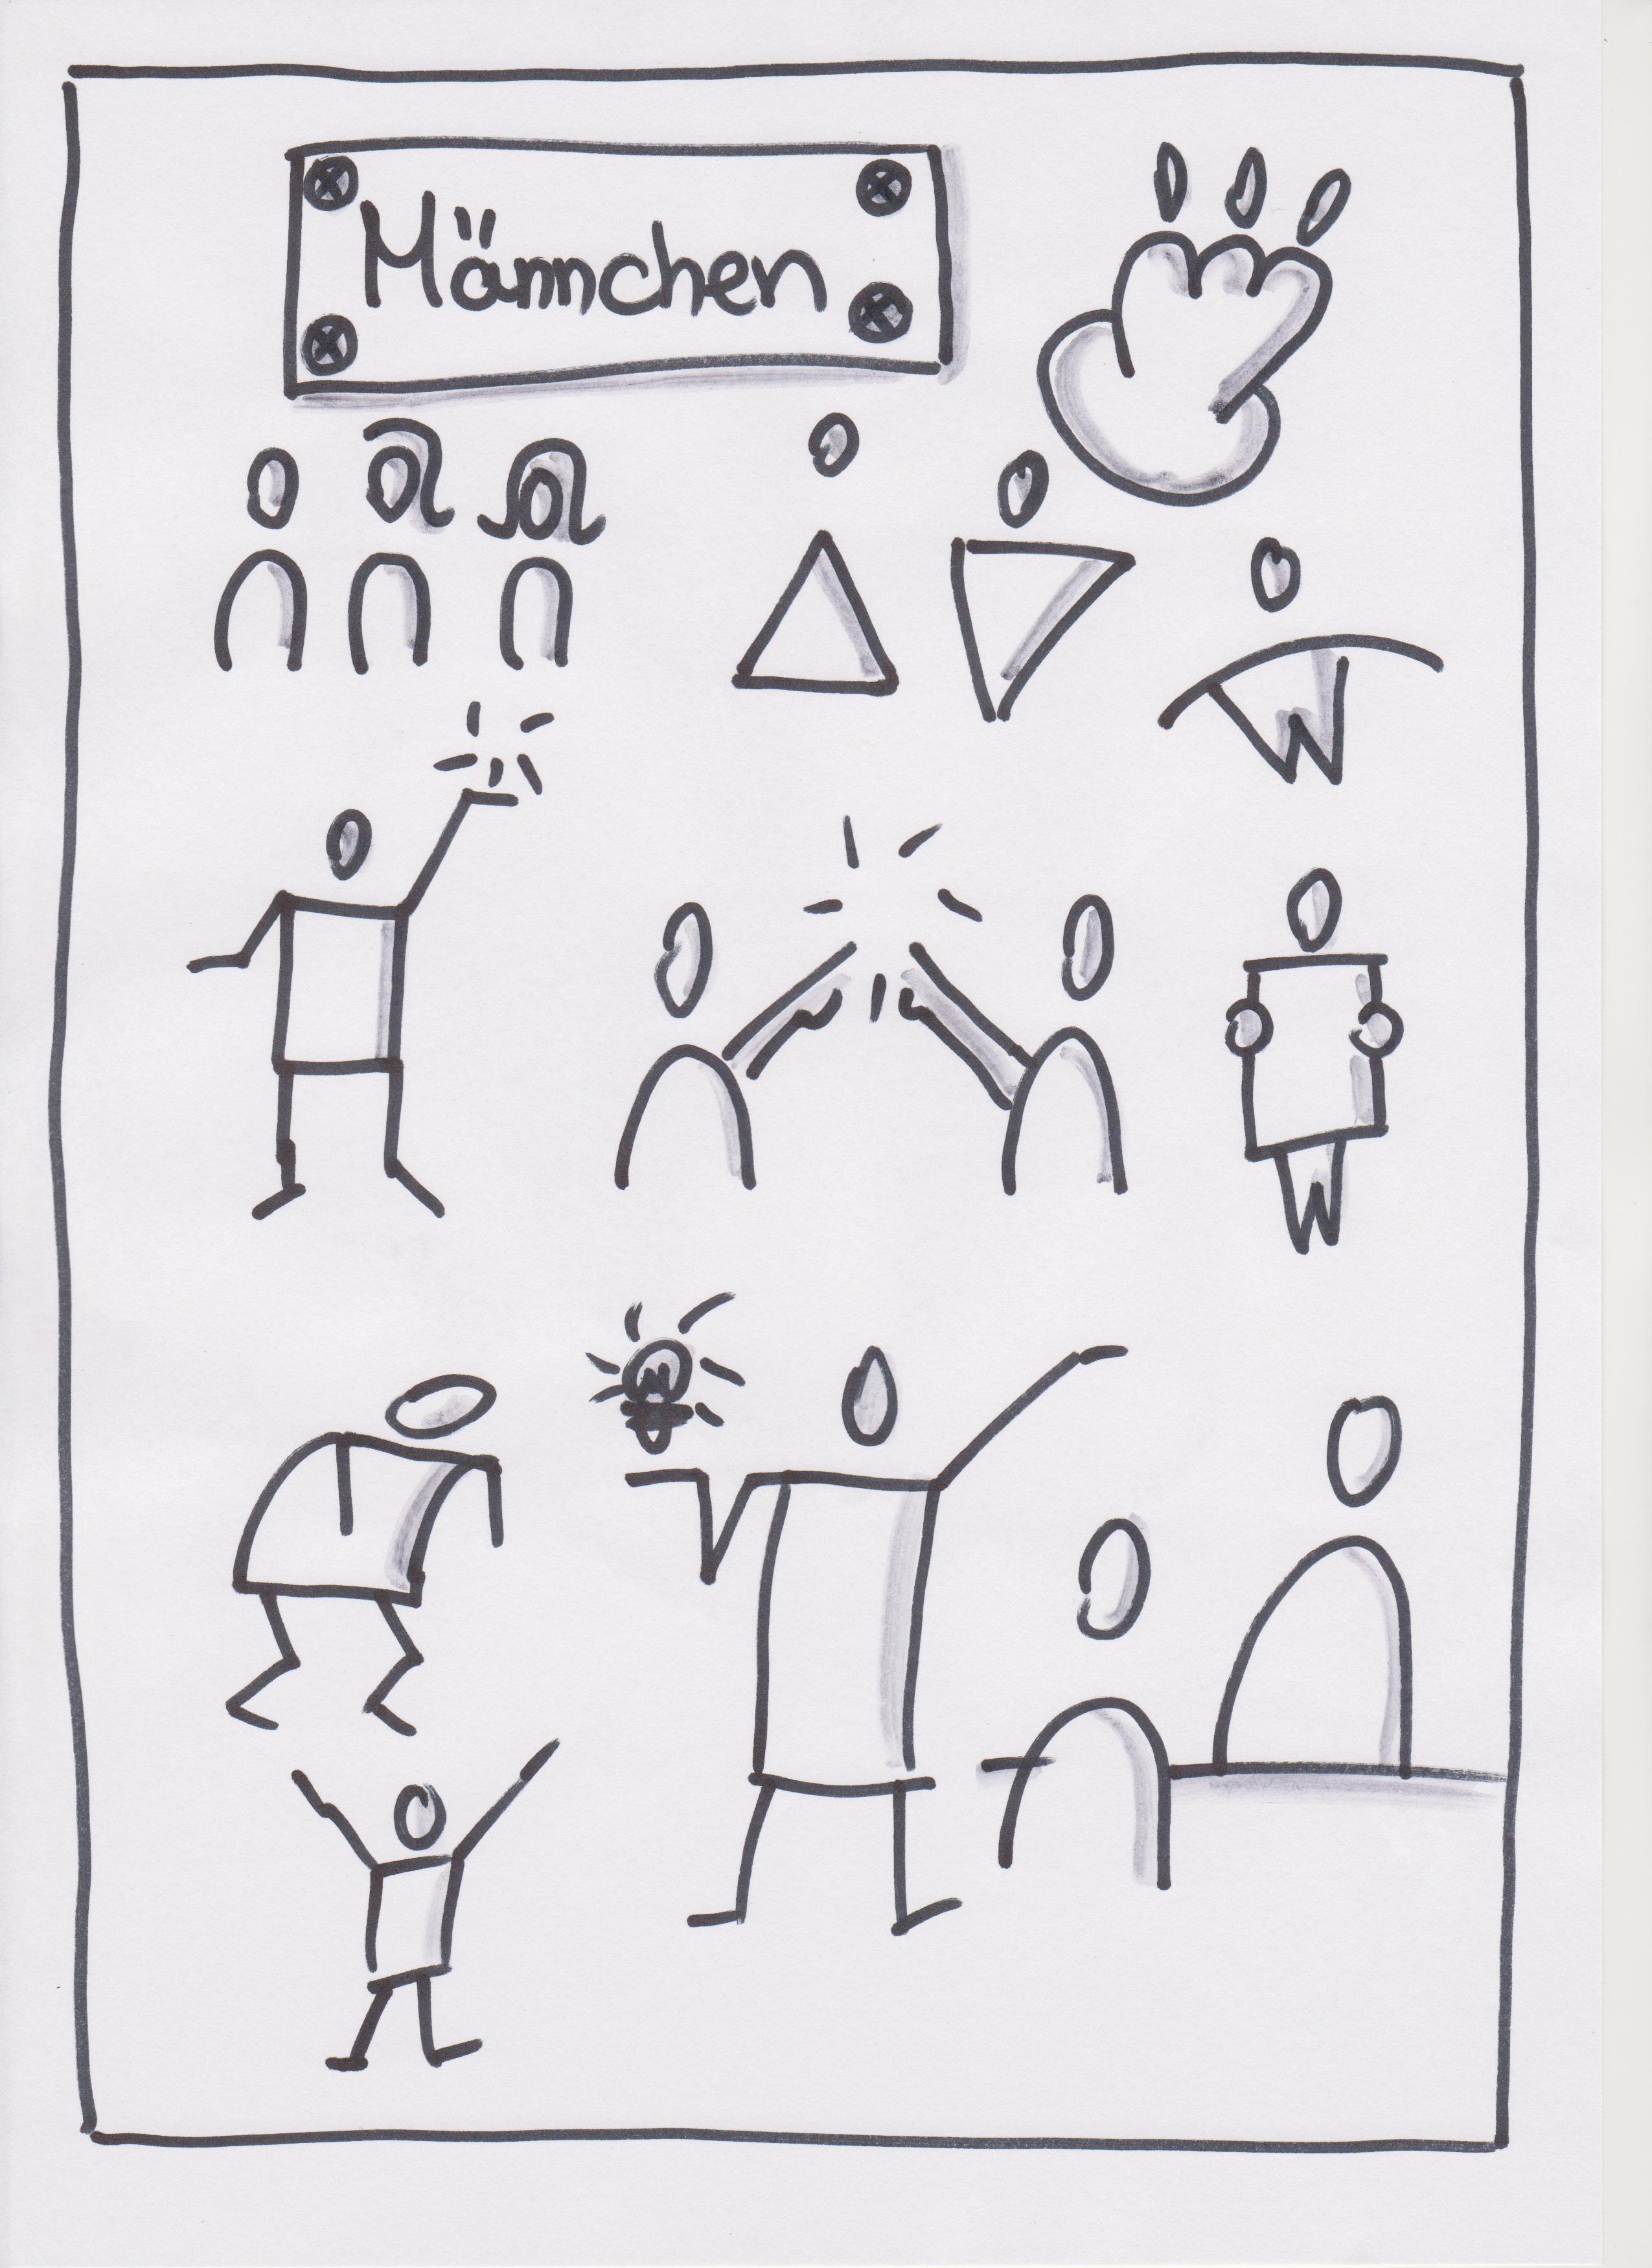 Männchen